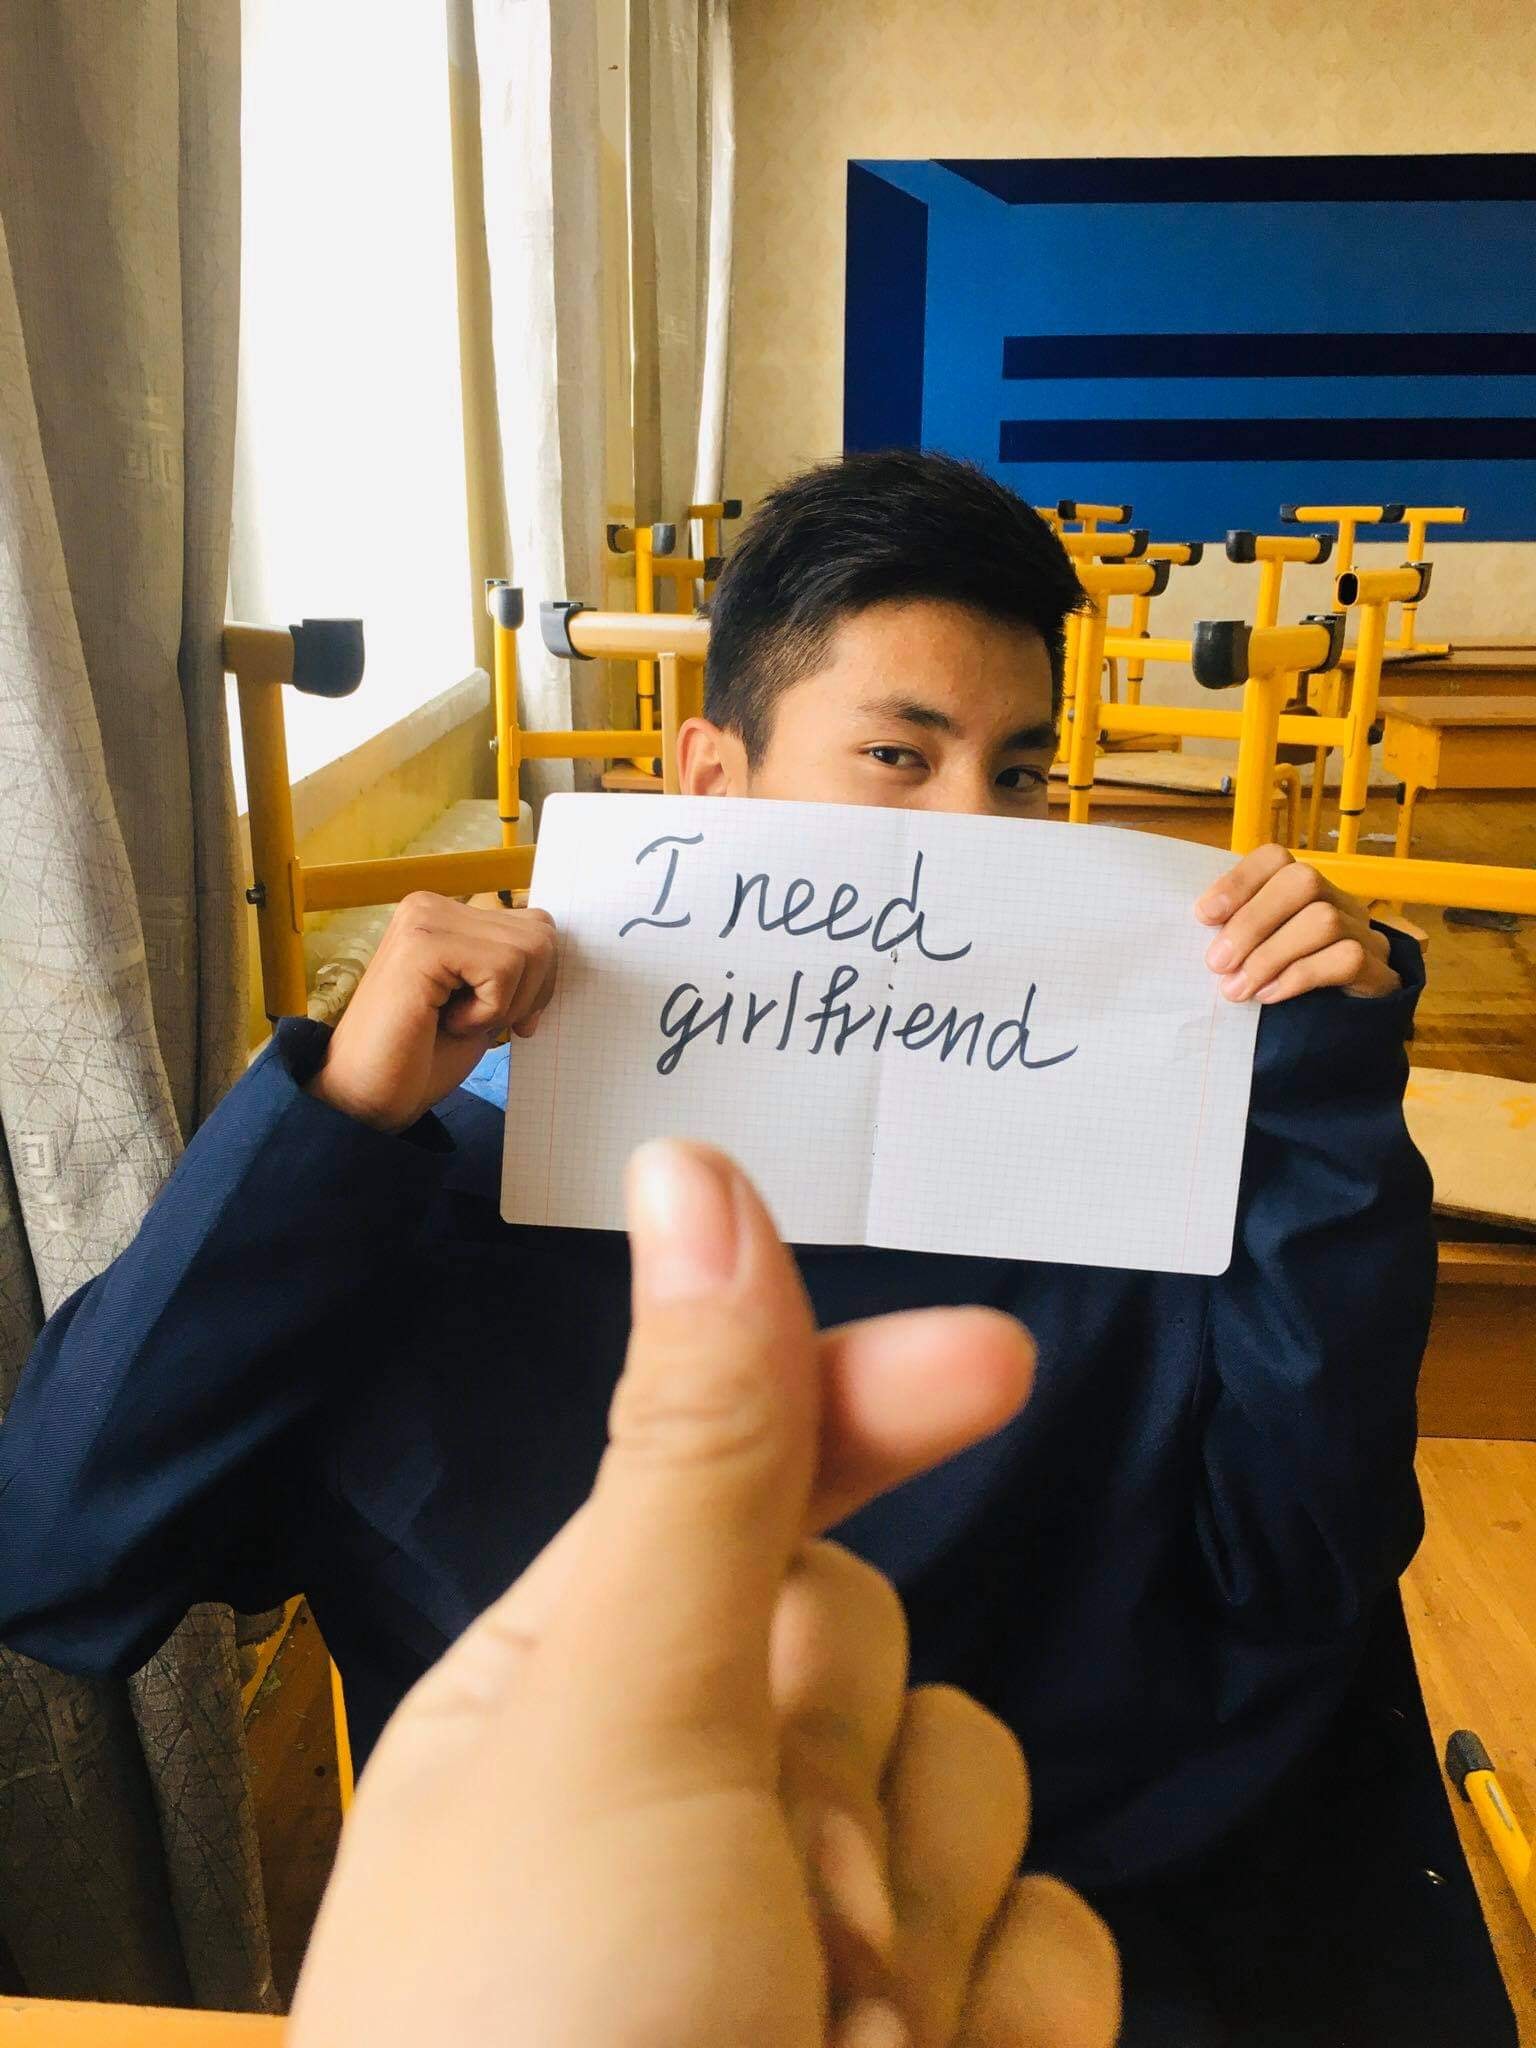 I need
girlfriend